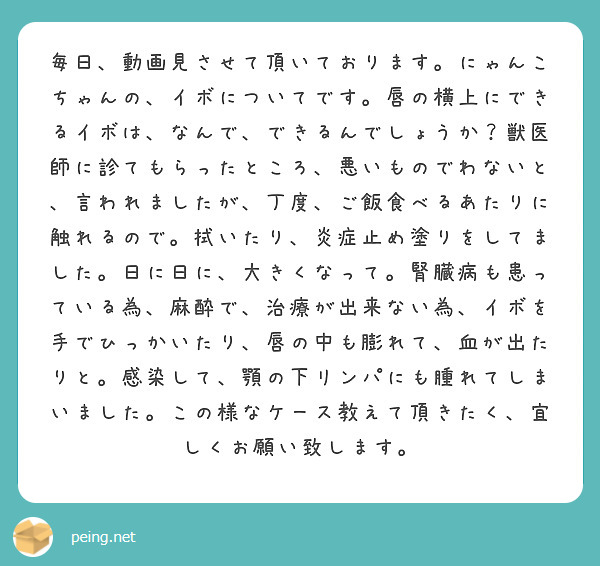 毎日、動画見させて頂いております。にゃんこ
ちゃんの、イボについてです。唇の横上にでき
るイボは、なんで、できるんでしょうか？獣医
師に診てもらったところ、悪いものでわないと
、言われましたが、丁度、ご飯食べるあたりに
触れるので。拭いたり、炎症止め塗りをしてま
した。日に日に、大きくなって。腎臓病も患っ
ている為、麻酔で、治療が出来ない為、イボを
手でひっかいたり、唇の中も膨れて、血が出た
りと。感染して、顎の下リンパにも腫れてしま
いました。この様なケース教えて頂きたく、宜
しくお願い致します。
peing.net